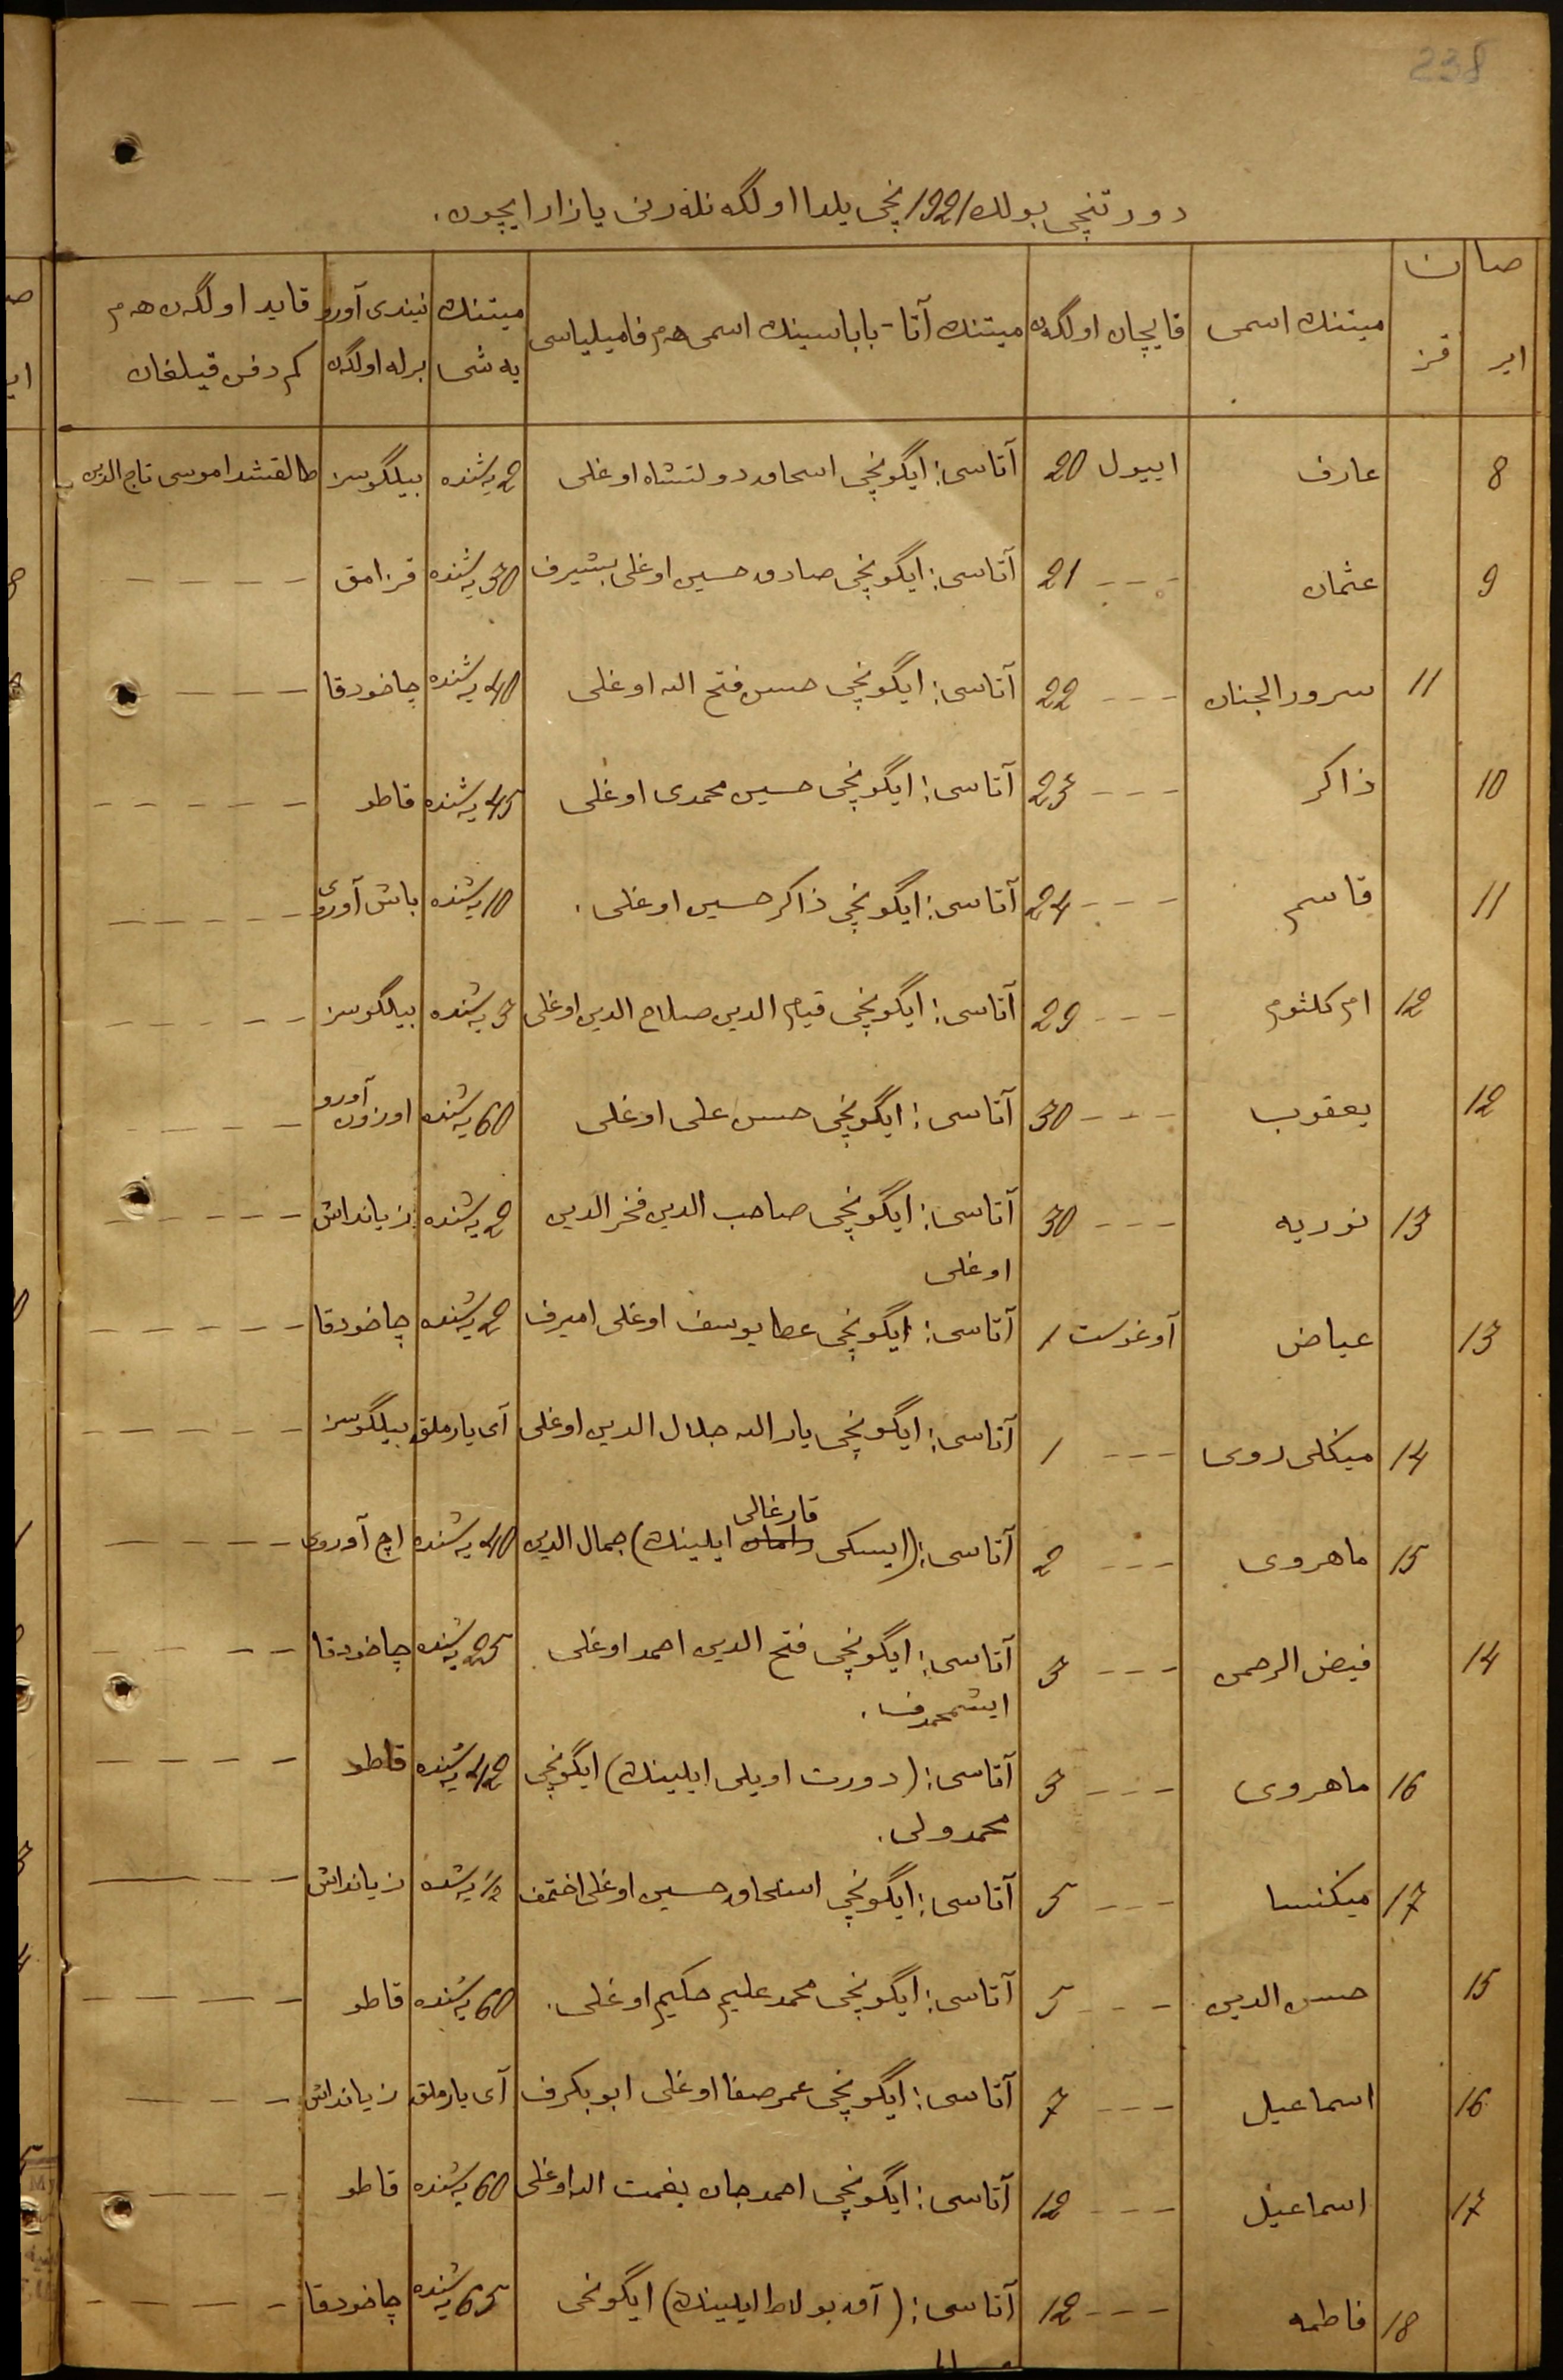 238
دورتنچی بولك 1921 نچی یلدا اولگه نلەرنی یازار ایچون.
صان
ایر
قز
میتنڭ اسمی
قایچان اولگەن
میتنڭ آتا-باباسینڭ اسمی هم فامیلیاسی
میتنڭ یه شی
نیندی آورو برله اولگەن
قایدا اولگەن هم کم دفن قیلغان
8 عارف اییول 20 آتاسی: ایگونچی اسحاق دولتشاه اوغلی 2 یەشندە بیلگوسز طالقشدا موسی تاج الدین
9 عثمان --- 21 آتاسی: ایگونچی صادق حسین اوغلی بشیرف 30 یەشندە قزامق -----
11 سرورالجنان --- 22 آتاسی: ایگونچی حسن فتح الله اوغلی 40 یەشندە چاخودقا -----
10 ذاکر --- 23 آتاسی: ایگونچی حسین محمدی اوغلی 45 یەشندە قاطو -----
11 قاسم --- 24 آتاسی: ایگونچی ذاکر حسین اوغلی. 10 یەشندە باش آوروی -----
12 ام کلثوم --- 29 آتاسی: ایگونچی قیام الدین صلاح الدین اوغلی 3 یەشندە بیلگوسز -----
12 یعقوب --- 30 آتاسی: ایگونچی حسن علی اوغلی 60 یەشندە اوزون آورو -----
13 نوریه --- 30 آتاسی: ایگونچی صاحب الدین فخر الدین 2 یەشندە زیانداش -----
اوغلی
13 عیاض آوغوست 1 آتاسی: ایگونچی عطا یوسف اوغلی امیرف 2 یەشندە چاخودقا -----
14 مینکلی روی --- 1 آتاسی: ایگونچی یار الله جلال الدین اوغلی آی یارملق بیلگوسز -----
قارغالی
15 ماهروی --- 2 آتاسی: (ایسکی ایلینڭ) جمال الدین 40 یەشندە اچ آوروی -----
14 فیض الرحمن --- 3 آتاسی: ایگونچی فتح الدین احمد اوغلی 25 یەشندە چاخودقا ----
ایشمحمدف.
16 ماهروی --- 3 آتاسی: (دورت اویلی ایلینڭ) ایگونچی 42 یەشندە قاطو ----
محمدولی.
17 میکنسا --- 5 آتاسی: ایگونچی اسحاق حسین اوغلی اختمف 1/2 یەشندە زیانداش ----
15 حسن الدین --- 5 آتاسی: ایگونچی محمد علیم حکیم اوغلی. 60 یەشندە قاطو ----
16 اسماعیل --- 7 آتاسی: ایگونچی عمر صفا اوغلی ابوبکرف آی یارملق زیانداش ----
17 اسماعیل --- 12 آتاسی: ایگونچی احمدجان نعمت الله اوغلی 60 یەشندە قاطو ----
18 فاطمه --- 12 آتاسی: (آق بولاط ایلینڭ) ایگونچی 65 یەشندە چاخودقا -----